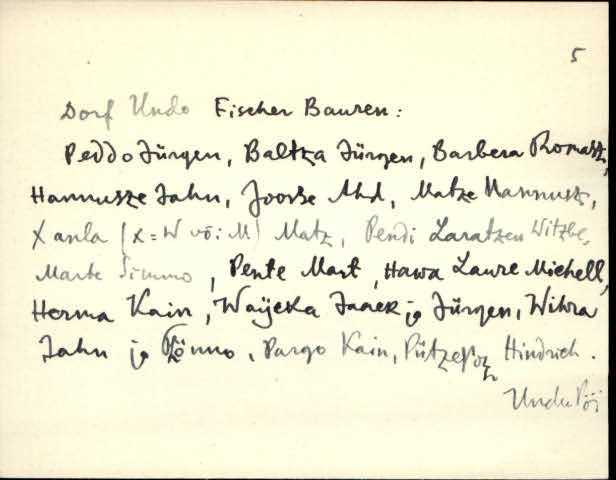 5
Dorf Undo Fischer Bauren:
Peddo Jürgen, Baltza Jürgen, Barbera Romatz,
Hannusze Jahn, Jooske Ahd, Matze Hannusz,
Xanla (X = W või M) Matz, Pendi Laratzen Witzbe,
Marte Simmo, Pente Mart, Hawa Laure Michell,
Herma Kain, Waijeka Jaack ja Jürgen, Wihra
Jahn ja Tönno, Pargo Kain, Hindrich.
Undu